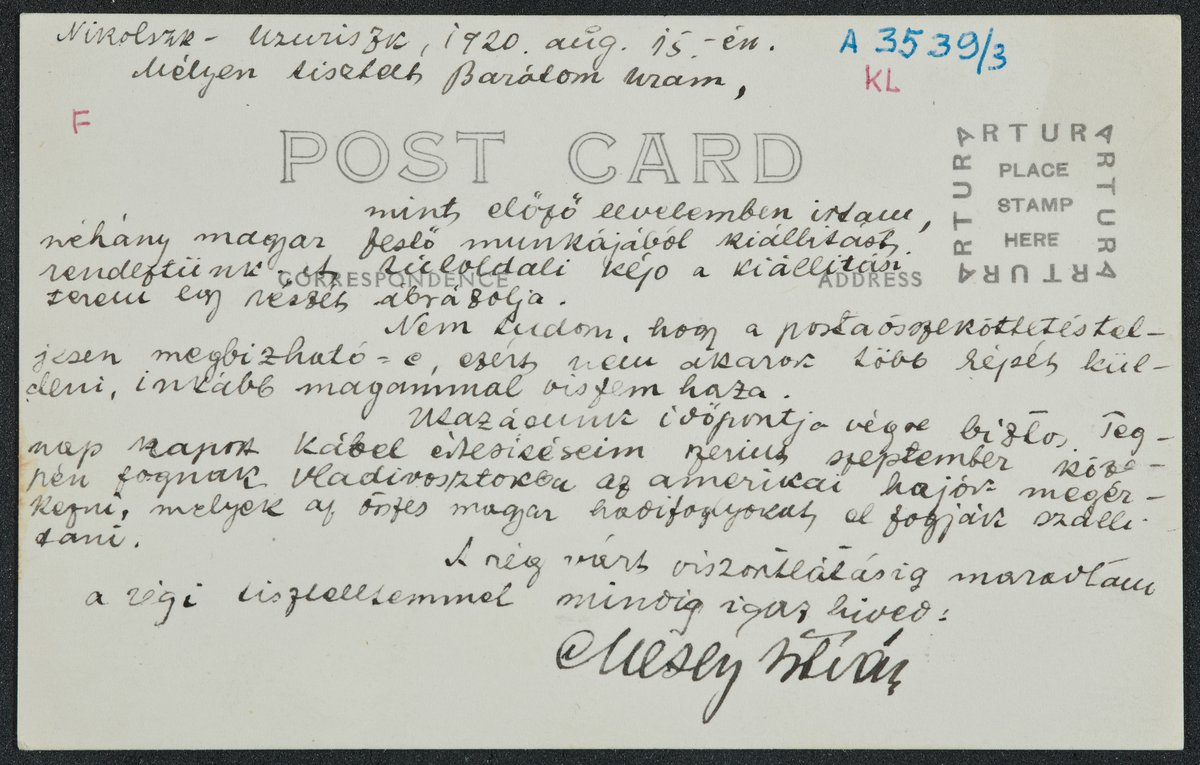 Nikolszk - Uzuriszk, 1920. aug. 15.-én.
A 3539/3
Mélyen tisztelt Barátom Uram,
KL
F
POST CARD
ARTURA ARTURA ARTURA ARTURA
PLACE
STAMP
HERE
mint előző levelemben irtam,
néhány magyar festő munkájából kiállitást
rendeztünk s tuloldali kép a kiállitási
CORRESPONDENCE
ADDRESS
terem egy részét ábrázolja.
Nem tudom, hogy a postaösszeköttetés tel-
jesen megbizható-e, ezért nem akarok több képet kül-
deni, inkább magammal viszem haza.
Utazásunk időpontja végre biztos. Teg-
nap kapott kábel értesitéseim szerint szeptember köze-
pén fognak Vladivosztokba az amerikai hajók megér-
kezni, melyek az összes magyar hadifoglyokat el fogják szálli-
tani.
A rég várt viszontlátásig maradtam
a régi tisztelettemmel mindig igaz hived:
Mészey István